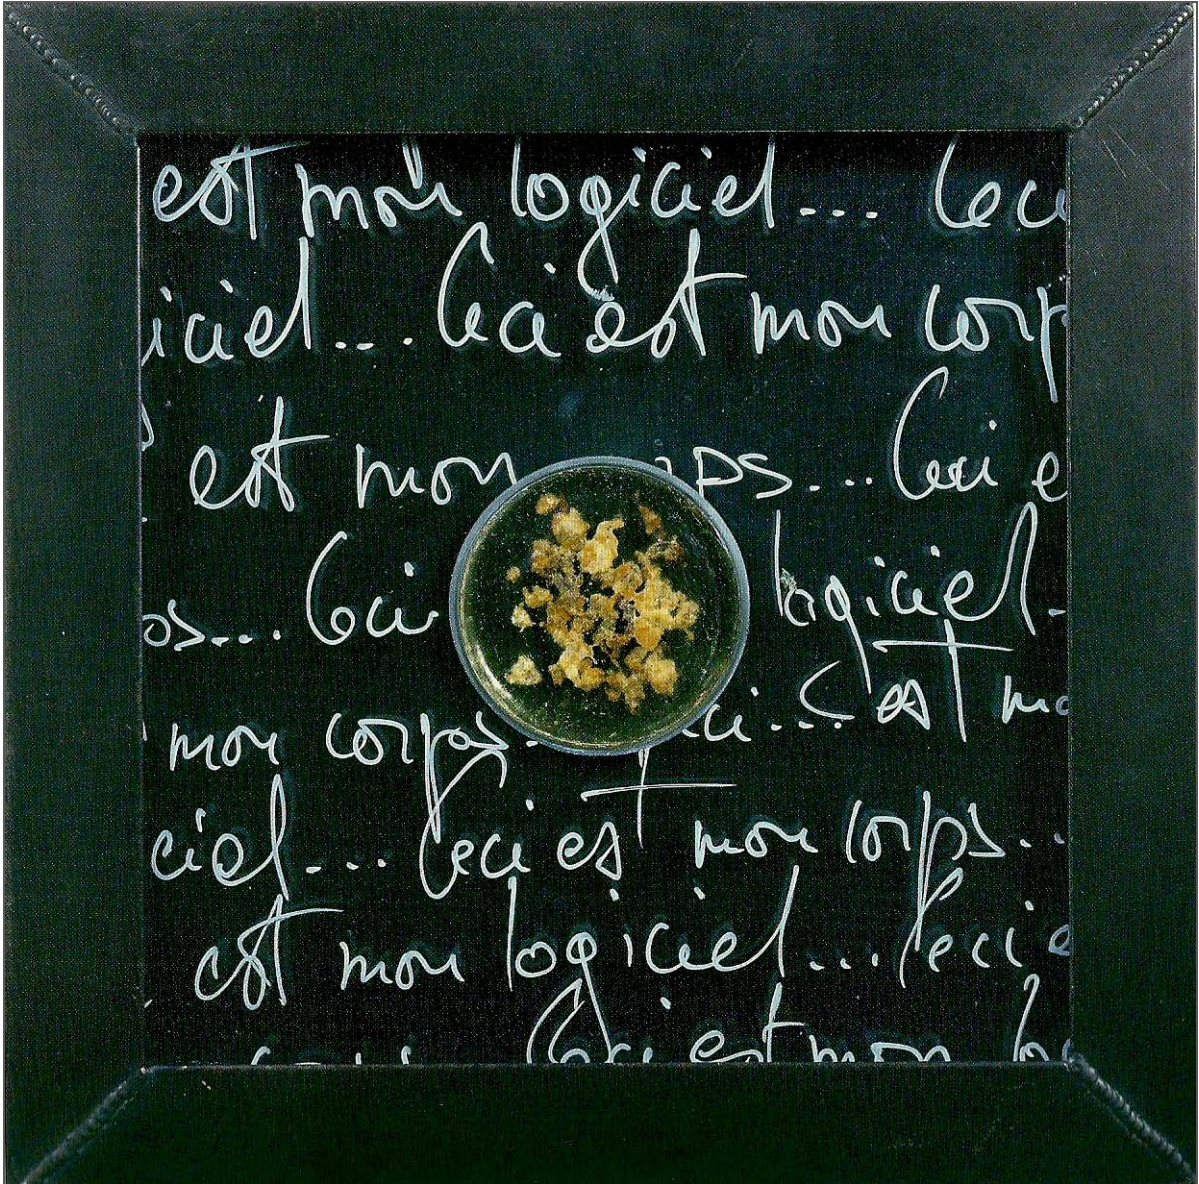 est mon logiciel... Ceci
iciel... Ceci est mon corp
est mon ps... Ceci e
os... Ceci logiciel.
mon corps. ci... est mo
ciel... Ceci est mon corps..
est mon logiciel... Ceci e
Ceci est mon lo